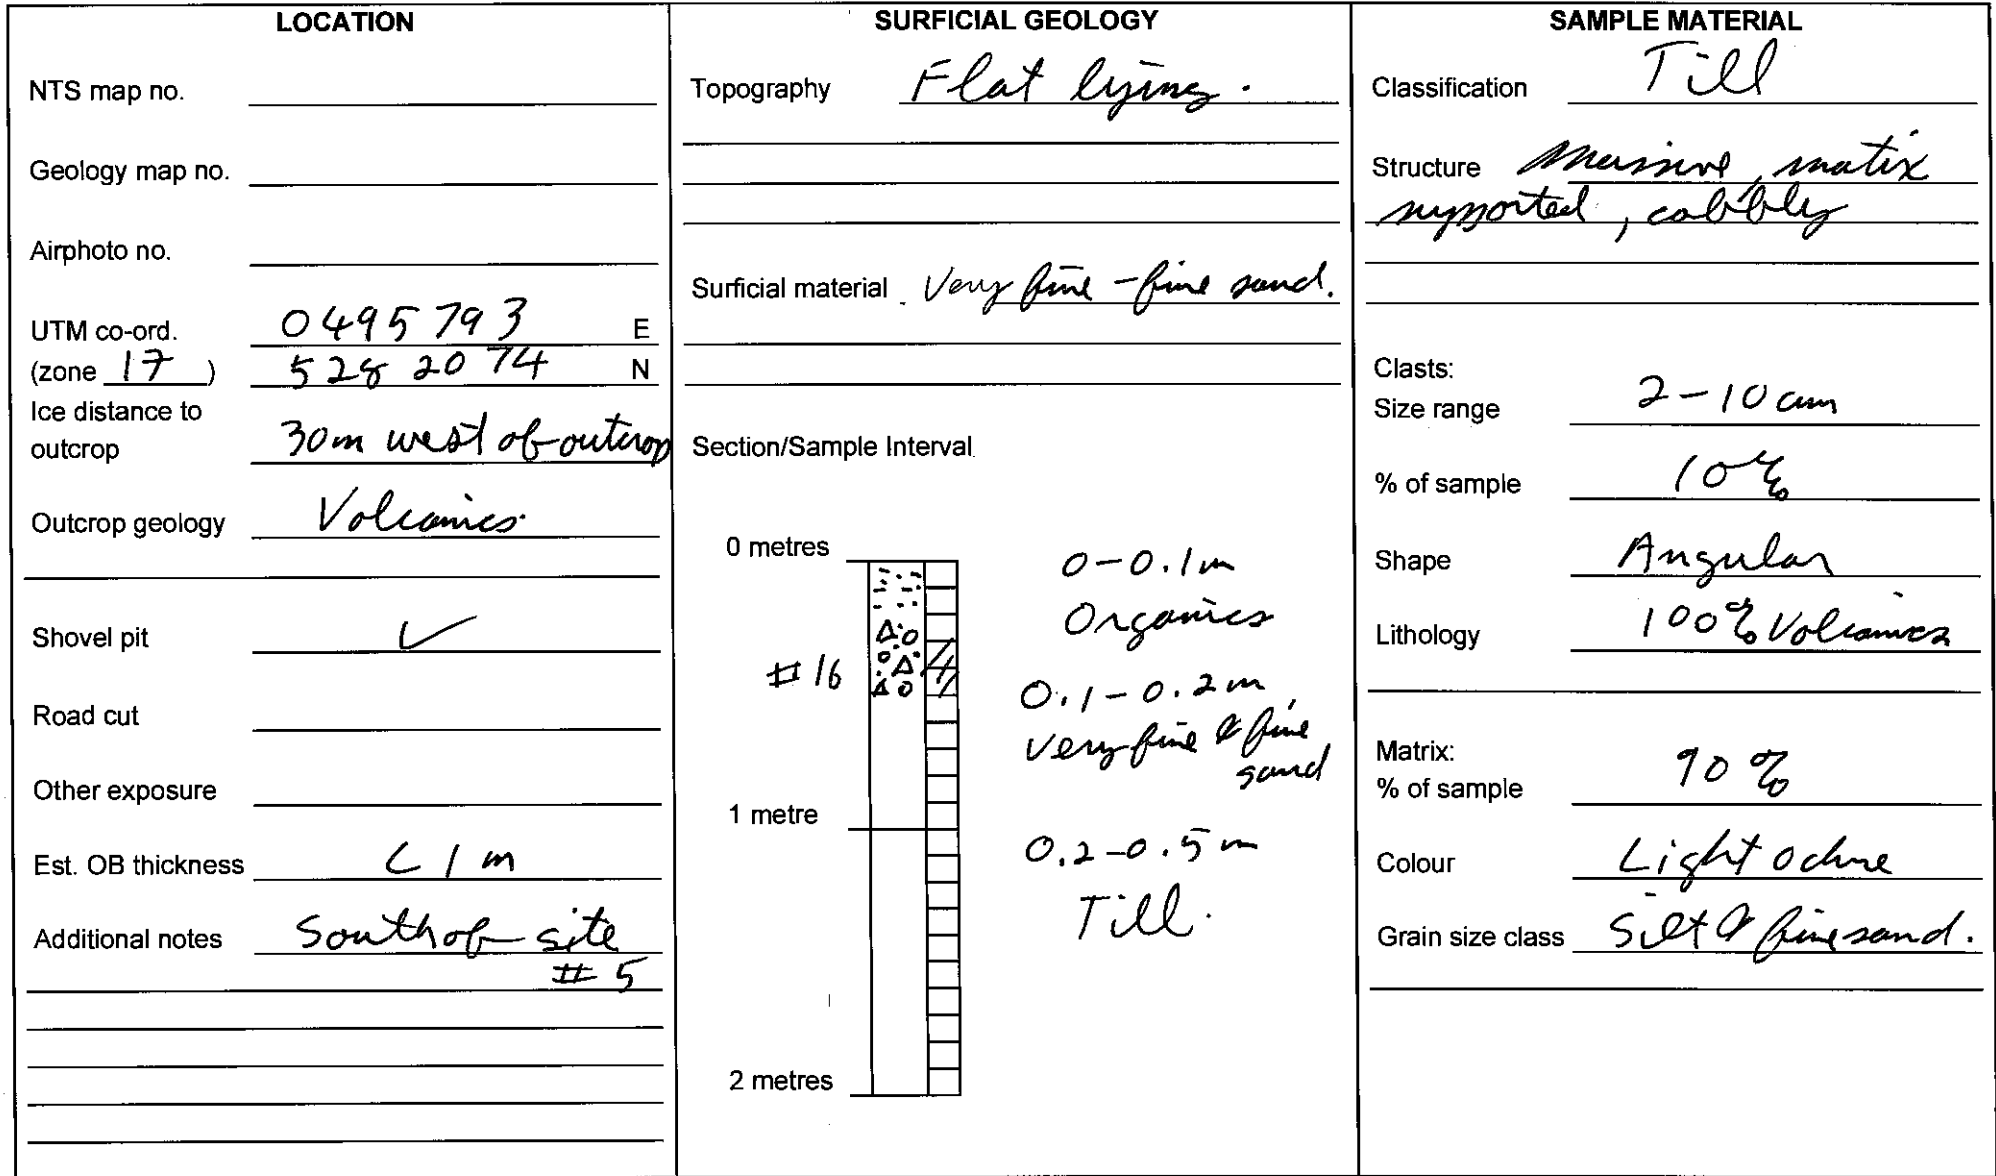 LOCATION
NTS map no.
Geology map no.
Airphoto no.
UTM co-ord. 0495793 E
(zone 17) 528 20 74 N
Ice distance to
outcrop 30m west of outcrop
Outcrop geology Volcanics
Shovel pit ✓
Road cut
Other exposure
Est. OB thickness < 1 m
Additional notes South of site
# 5
SURFICIAL GEOLOGY
Topography Flat lying.
Surficial material Very fine - fine sand.
Section/Sample Interval
0 metres
# 16
1 metre
2 metres
0-0.1m
Organics
0.1-0.2m
Very fine & fine
sand
0.2-0.5m
Till.
SAMPLE MATERIAL
Classification Till
Structure Massive, matix
supported, cobbly
Clasts:
Size range 2-10 cm
% of sample 10%
Shape Angular
Lithology 100% Volcanics
Matrix:
% of sample 90%
Colour Light ochre
Grain size class Silt & fine sand.